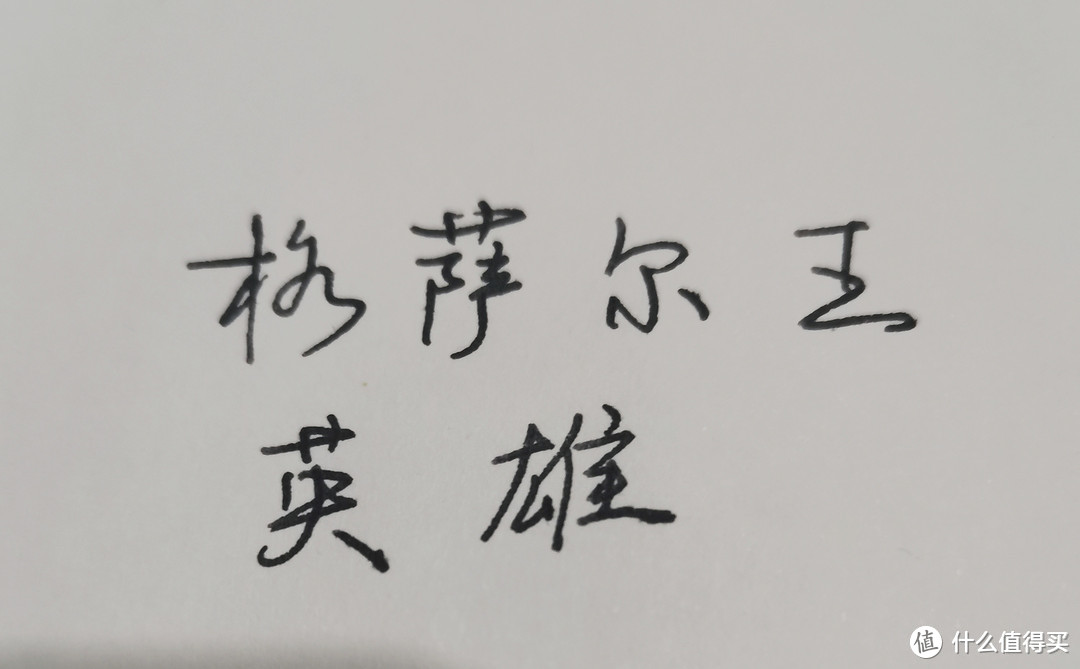 格萨尔王
英雄
值 什么值得买